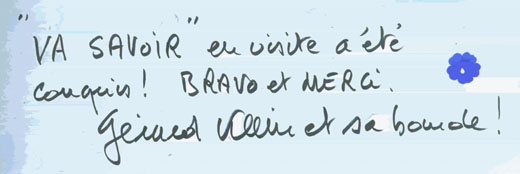 "VA SAVOIR" en visite a été
conquis! BRAVO et MERCi.
Gérard Klein et sa bande!